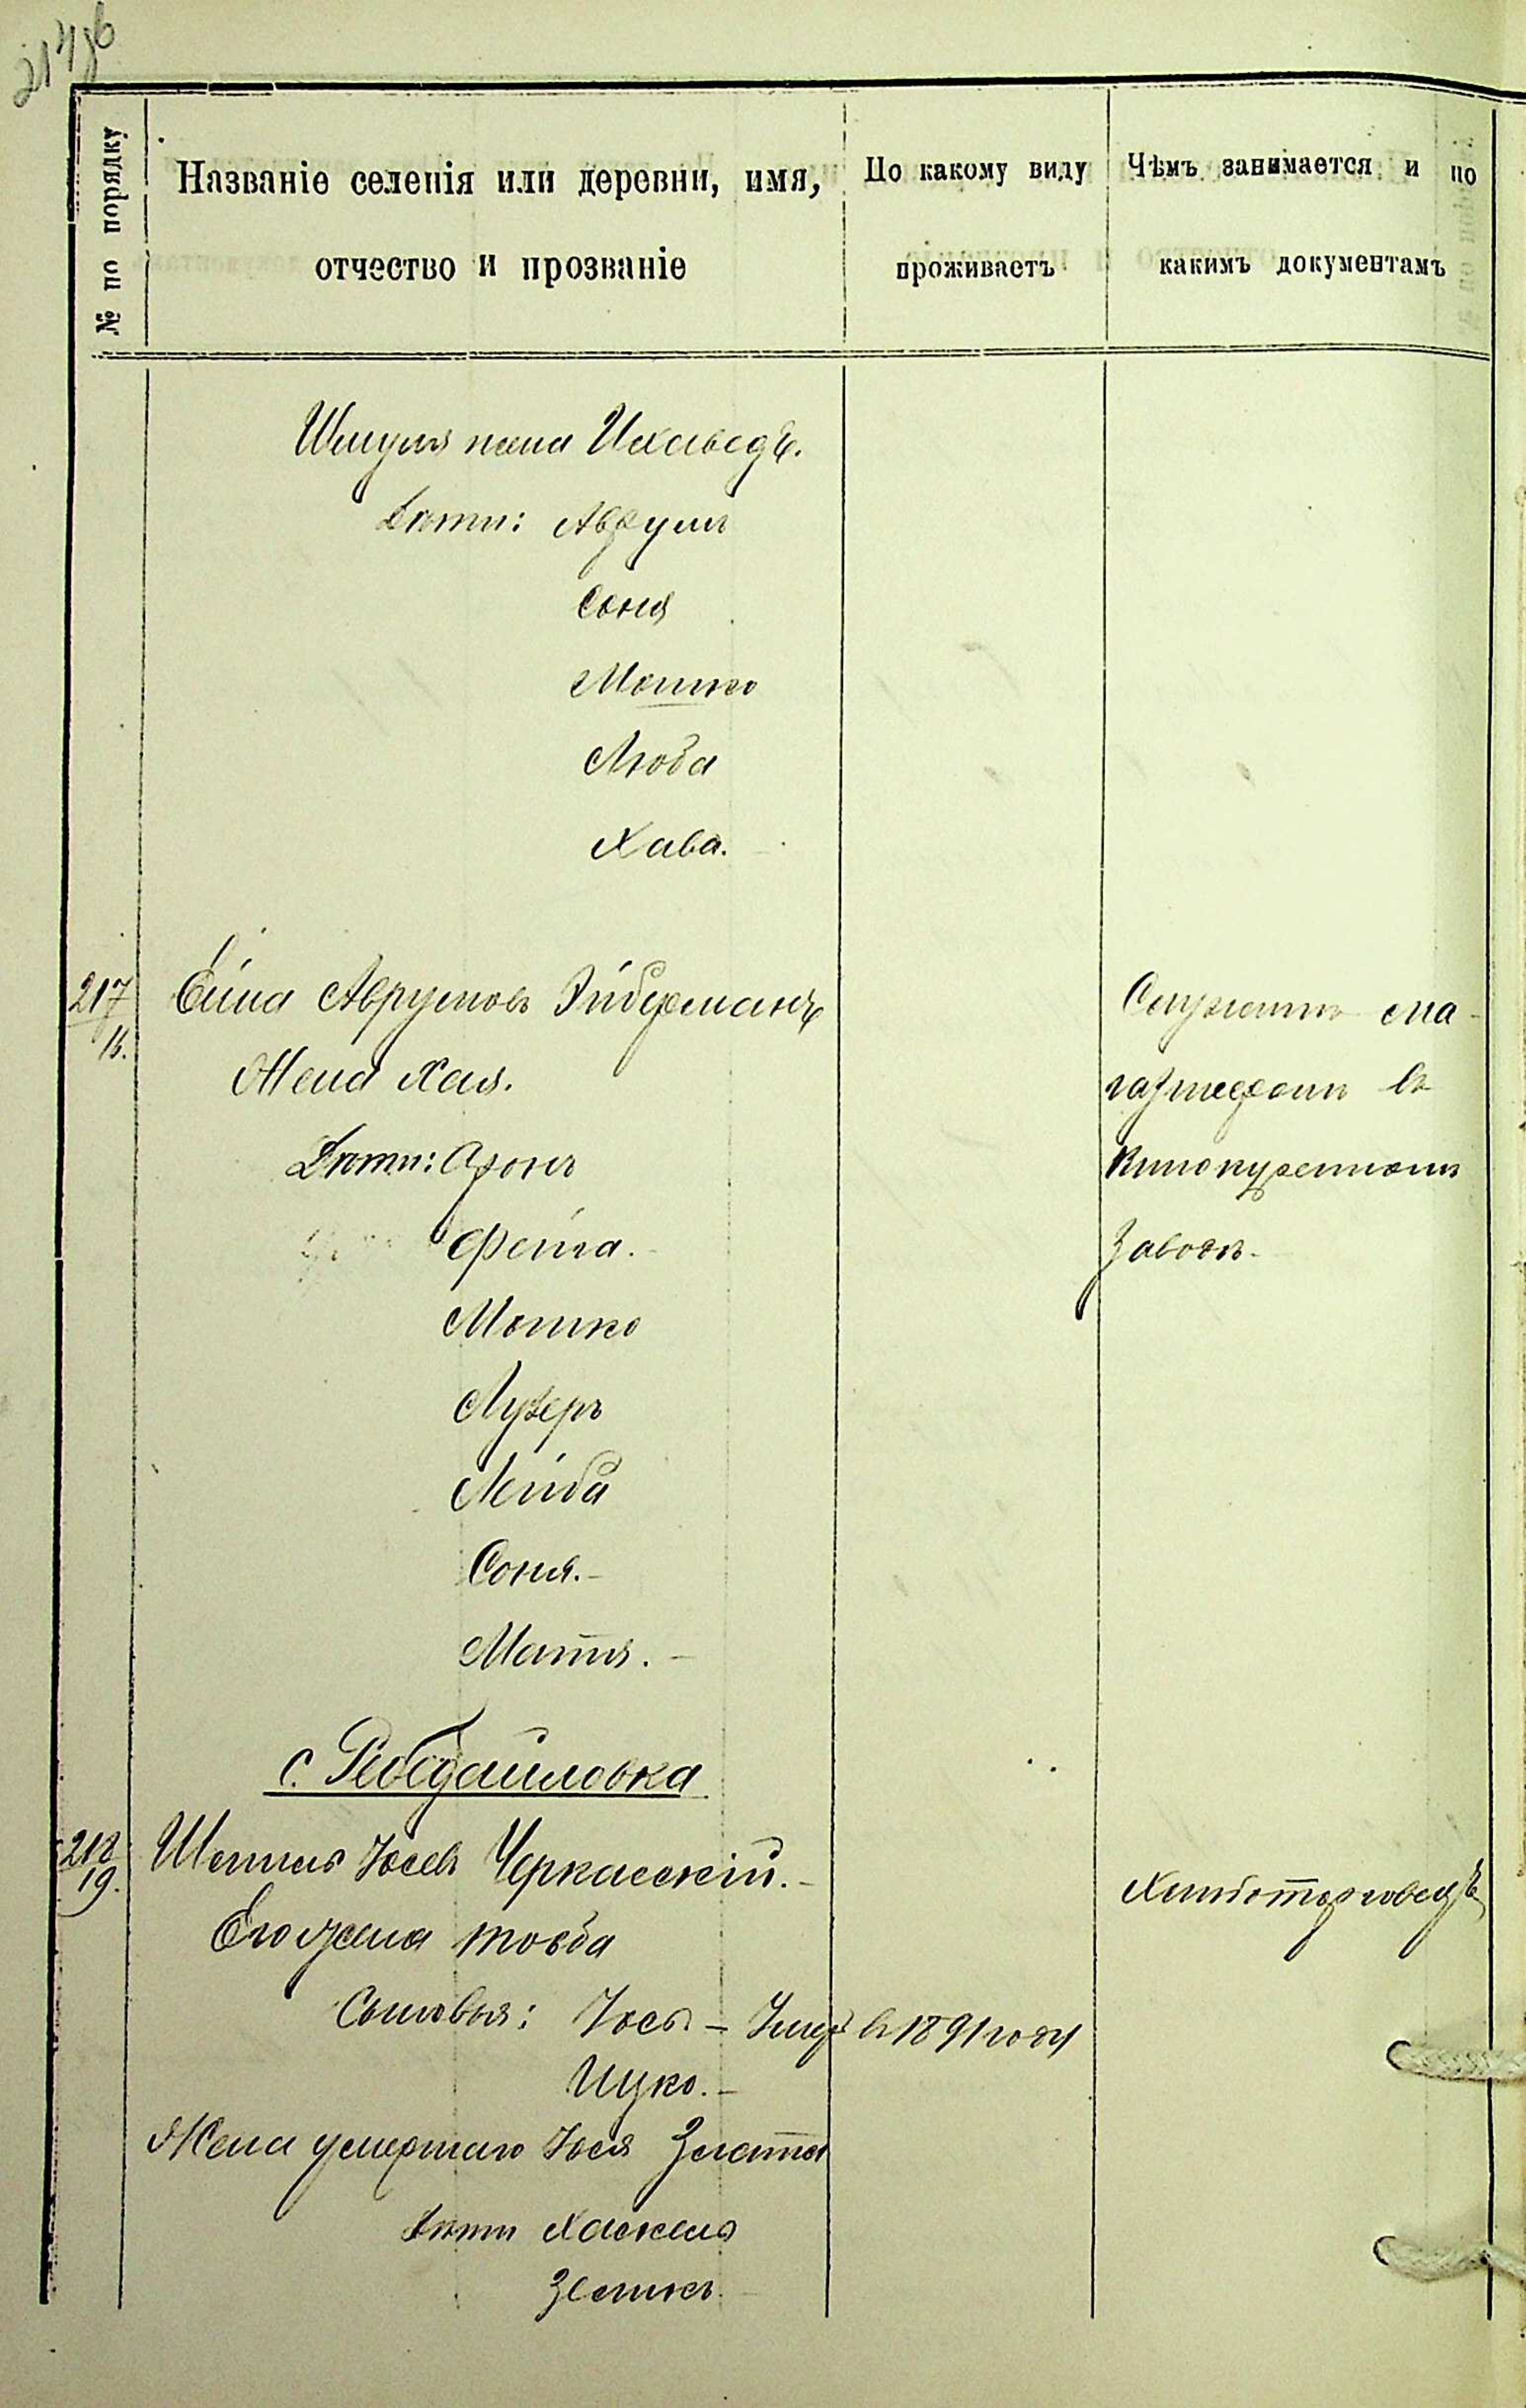 214 об
№ по порядку
Названіе селенія или деревни, имя,
отчество и прозваніе
По какому виду
проживаетъ
Чѣмъ занимается и по
какимъ документамъ
Шмуля жена Ихаведъ.
Дѣти: Аврумъ
Соня
Мошко
Люба
Хава.
217
16.
Аврумовъ
Жена Хая.
Дѣти: Аронъ
Фейга.
Мошко
Лузеръ
Лейба
Соня.
Матля.
Служитъ
въ
винокуренномъ
заводѣ.
с. Ребедайловка
218
19.
Іосевъ Черкасскій.
Его жена Товба
Сыновья: Іось – Умеръ въ 1891 году
Ицко.
Жена умершаго Іося Злата
Дѣти Хаскель
Зеликъ.
Хлѣботорговецъ